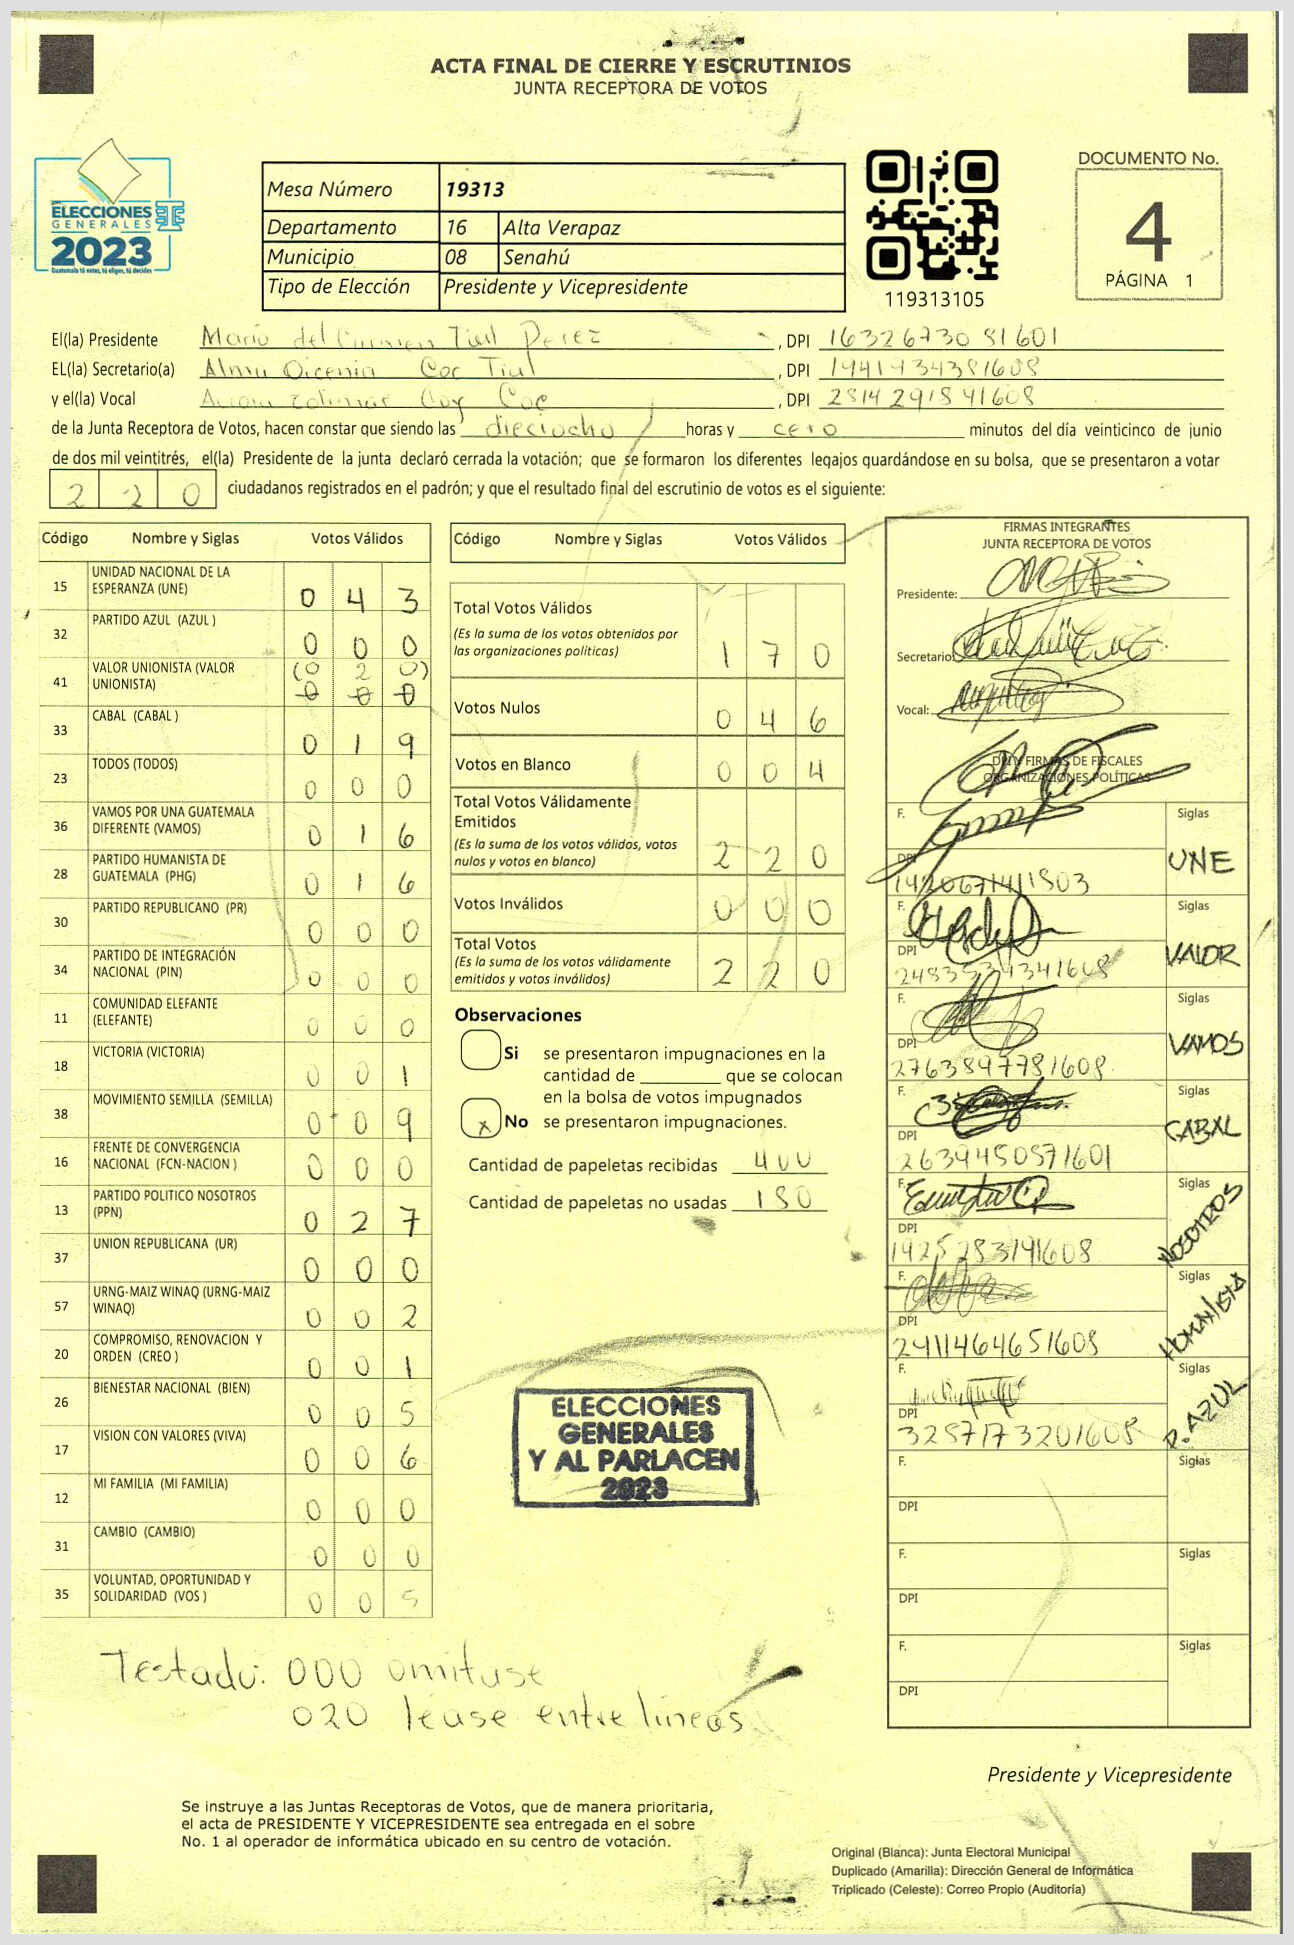 ACTA FINAL DE CIERRE Y ESCRUTINIOS
JUNTA RECEPTORA DE VOTOS
ELECCIONES
GENERALES
2023
Guatemala tú votas, tú eliges, tú decides
Mesa Número 19313
Departamento 16 Alta Verapaz
Municipio 08 Senahú
Tipo de Elección Presidente y Vicepresidente
119313105
DOCUMENTO No.
4
PÁGINA 1
El(la) Presidente María del Carmen Tiul Perez , DPI 1632673081601
EL(la) Secretario(a) Alma Coc Tiul , DPI
y el(la) Vocal Coy Coc , DPI 2814291841608
de la Junta Receptora de Votos, hacen constar que siendo las dieciocho horas y cero minutos del día veinticinco de junio
de dos mil veintitrés, el(la) Presidente de la junta declaró cerrada la votación; que se formaron los diferentes legajos guardándose en su bolsa, que se presentaron a votar
220 ciudadanos registrados en el padrón; y que el resultado final del escrutinio de votos es el siguiente:
Código Nombre y Siglas Votos Válidos
15 UNIDAD NACIONAL DE LA ESPERANZA (UNE) 0 4 3
32 PARTIDO AZUL (AZUL ) 0 0 0
41 VALOR UNIONISTA (VALOR UNIONISTA) (0 2 0)
0 0 0
33 CABAL (CABAL ) 0 1 9
23 TODOS (TODOS) 0 0 0
36 VAMOS POR UNA GUATEMALA DIFERENTE (VAMOS) 0 1 6
28 PARTIDO HUMANISTA DE GUATEMALA (PHG) 0 1 6
30 PARTIDO REPUBLICANO (PR) 0 0 0
34 PARTIDO DE INTEGRACIÓN NACIONAL (PIN) 0 0 0
11 COMUNIDAD ELEFANTE (ELEFANTE) 0 0 0
18 VICTORIA (VICTORIA) 0 0 1
38 MOVIMIENTO SEMILLA (SEMILLA) 0 0 9
16 FRENTE DE CONVERGENCIA NACIONAL (FCN-NACION ) 0 0 0
13 PARTIDO POLITICO NOSOTROS (PPN) 0 2 7
37 UNION REPUBLICANA (UR) 0 0 0
57 URNG-MAIZ WINAQ (URNG-MAIZ WINAQ) 0 0 2
20 COMPROMISO, RENOVACION Y ORDEN (CREO ) 0 0 1
26 BIENESTAR NACIONAL (BIEN) 0 0 5
17 VISION CON VALORES (VIVA) 0 0 6
12 MI FAMILIA (MI FAMILIA) 0 0 0
31 CAMBIO (CAMBIO) 0 0 0
35 VOLUNTAD, OPORTUNIDAD Y SOLIDARIDAD (VOS ) 0 0 5
Código Nombre y Siglas Votos Válidos
Total Votos Válidos
(Es la suma de los votos obtenidos por
las organizaciones políticas) 1 7 0
Votos Nulos 0 4 6
Votos en Blanco 0 0 4
Total Votos Válidamente
Emitidos
(Es la suma de los votos válidos, votos
nulos y votos en blanco) 2 2 0
Votos Inválidos 0 0 0
Total Votos
(Es la suma de los votos válidamente
emitidos y votos inválidos) 2 2 0
Observaciones
Si se presentaron impugnaciones en la
cantidad de ________ que se colocan
en la bolsa de votos impugnados
x No se presentaron impugnaciones.
Cantidad de papeletas recibidas 400
Cantidad de papeletas no usadas 180
ELECCIONES
GENERALES
Y AL PARLACEN
2023
FIRMAS INTEGRANTES
JUNTA RECEPTORA DE VOTOS
Presidente:
Secretario:
Vocal:
DPI Y FIRMAS DE FISCALES
ORGANIZACIONES POLÍTICAS
F. Siglas
DPI UNE
1420671411503
F. Siglas
DPI VALOR
F. Siglas
DPI VAMOS
2763897781608
F. Siglas
DPI CABAL
2639450571601
F. Siglas
DPI NOSOTROS
1425283191608
F. Siglas
DPI HUMANISTA
2411464651608
F. Siglas
DPI P. AZUL
3257173201608
F. Siglas
DPI
F. Siglas
DPI
F. Siglas
DPI
Testado: 000 omitase
020 lease entre lineas
Presidente y Vicepresidente
Se instruye a las Juntas Receptoras de Votos, que de manera prioritaria,
el acta de PRESIDENTE Y VICEPRESIDENTE sea entregada en el sobre
No. 1 al operador de informática ubicado en su centro de votación.
Original (Blanca): Junta Electoral Municipal
Duplicado (Amarilla): Dirección General de Informática
Triplicado (Celeste): Correo Propio (Auditoría)